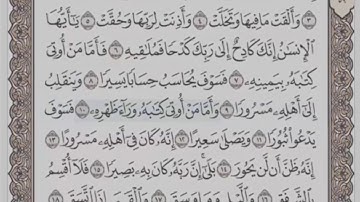 ٣ وَأَلْقَتْ مَا فِيهَا وَتَخَلَّتْ ٤ وَأَذِنَتْ لِرَبِّهَا وَحُقَّتْ ٥ يَٰٓأَيُّهَا
ٱلْإِنسَٰنُ إِنَّكَ كَادِحٌ إِلَىٰ رَبِّكَ كَدْحًا فَمُلَٰقِيهِ ٦ فَأَمَّا مَنْ أُوتِىَ
كِتَٰبَهُۥ بِيَمِينِهِۦ ٧ فَسَوْفَ يُحَاسَبُ حِسَابًا يَسِيرًا ٨ وَيَنقَلِبُ
إِلَىٰٓ أَهْلِهِۦ مَسْرُورًا ٩ وَأَمَّا مَنْ أُوتِىَ كِتَٰبَهُۥ وَرَآءَ ظَهْرِهِۦ ١٠ فَسَوْفَ
يَدْعُوا۟ ثُبُورًا ١١ وَيَصْلَىٰ سَعِيرًا ١٢ إِنَّهُۥ كَانَ فِىٓ أَهْلِهِۦ مَسْرُورًا ١٣
إِنَّهُۥ ظَنَّ أَن لَّن يَحُورَ ١٤ بَلَىٰٓ إِنَّ رَبَّهُۥ كَانَ بِهِۦ بَصِيرًا ١٥ فَلَآ أُقْسِمُ
بِٱلشَّفَقِ ١٦ وَٱلَّيْلِ وَمَا وَسَقَ ١٧ وَٱلْقَمَرِ إِذَا ٱتَّسَقَ ١٨